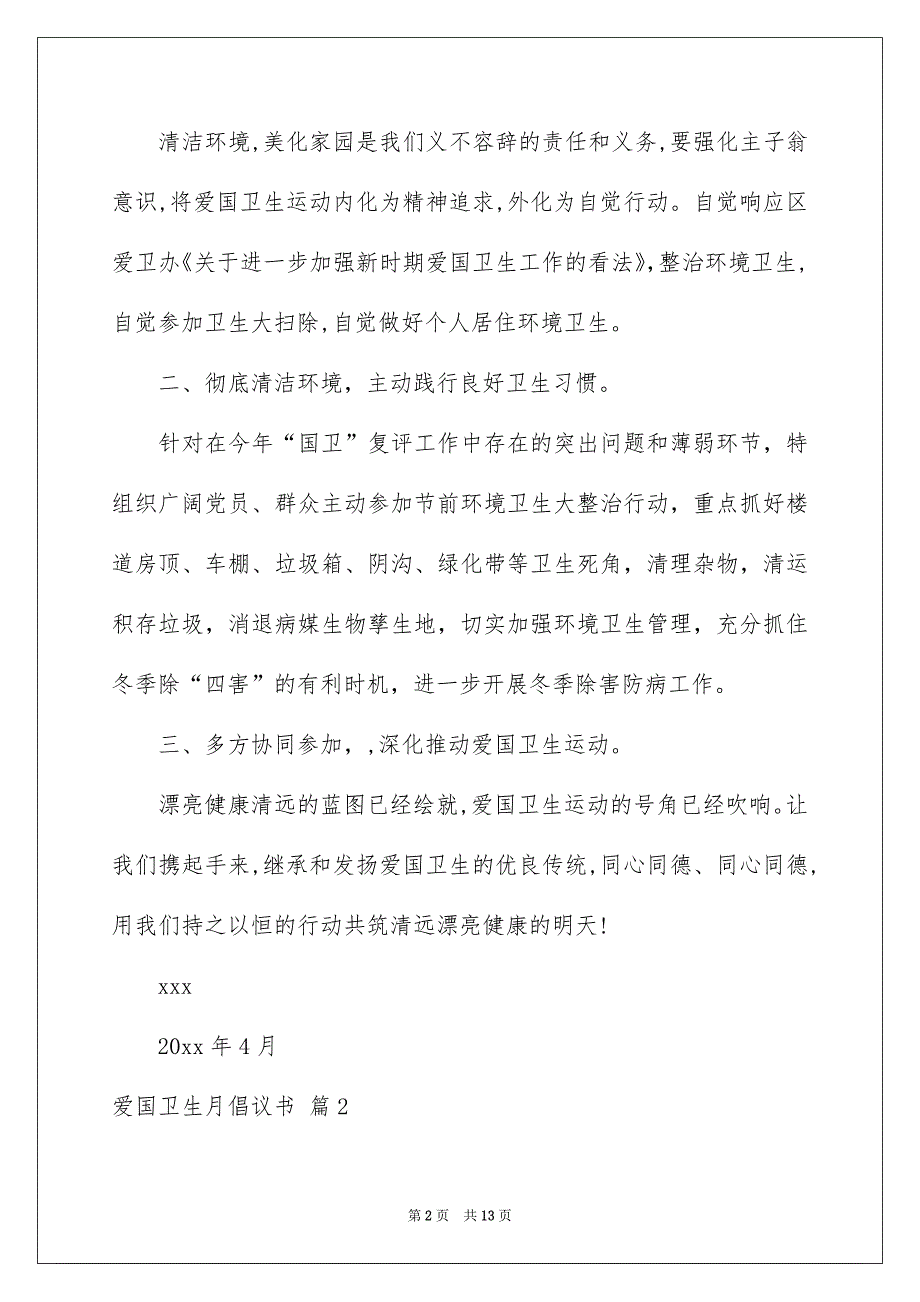 清洁环境,美化家园是我们义不容辞的责任和义务,要强化主子翁
意识,将爱国卫生运动内化为精神追求,外化为自觉行动。自觉响应区
爱卫办《关于进一步加强新时期爱国卫生工作的看法》,整治环境卫生,
自觉参加卫生大扫除,自觉做好个人居住环境卫生。
二、彻底清洁环境，主动践行良好卫生习惯。
针对在今年“国卫”复评工作中存在的突出问题和薄弱环节，特
组织广阔党员、群众主动参加节前环境卫生大整治行动，重点抓好楼
道房顶、车棚、垃圾箱、阴沟、绿化带等卫生死角，清理杂物，清运
积存垃圾，消退病媒生物孳生地，切实加强环境卫生管理，充分抓住
冬季除“四害”的有利时机，进一步开展冬季除害防病工作。
三、多方协同参加，,深化推动爱国卫生运动。
漂亮健康清远的蓝图已经绘就,爱国卫生运动的号角已经吹响。让
我们携起手来,继承和发扬爱国卫生的优良传统,同心同德、同心同德,
用我们持之以恒的行动共筑清远漂亮健康的明天!
xxx
20xx 年 4 月
爱国卫生月倡议书 篇 2
第 2 页 共 13 页